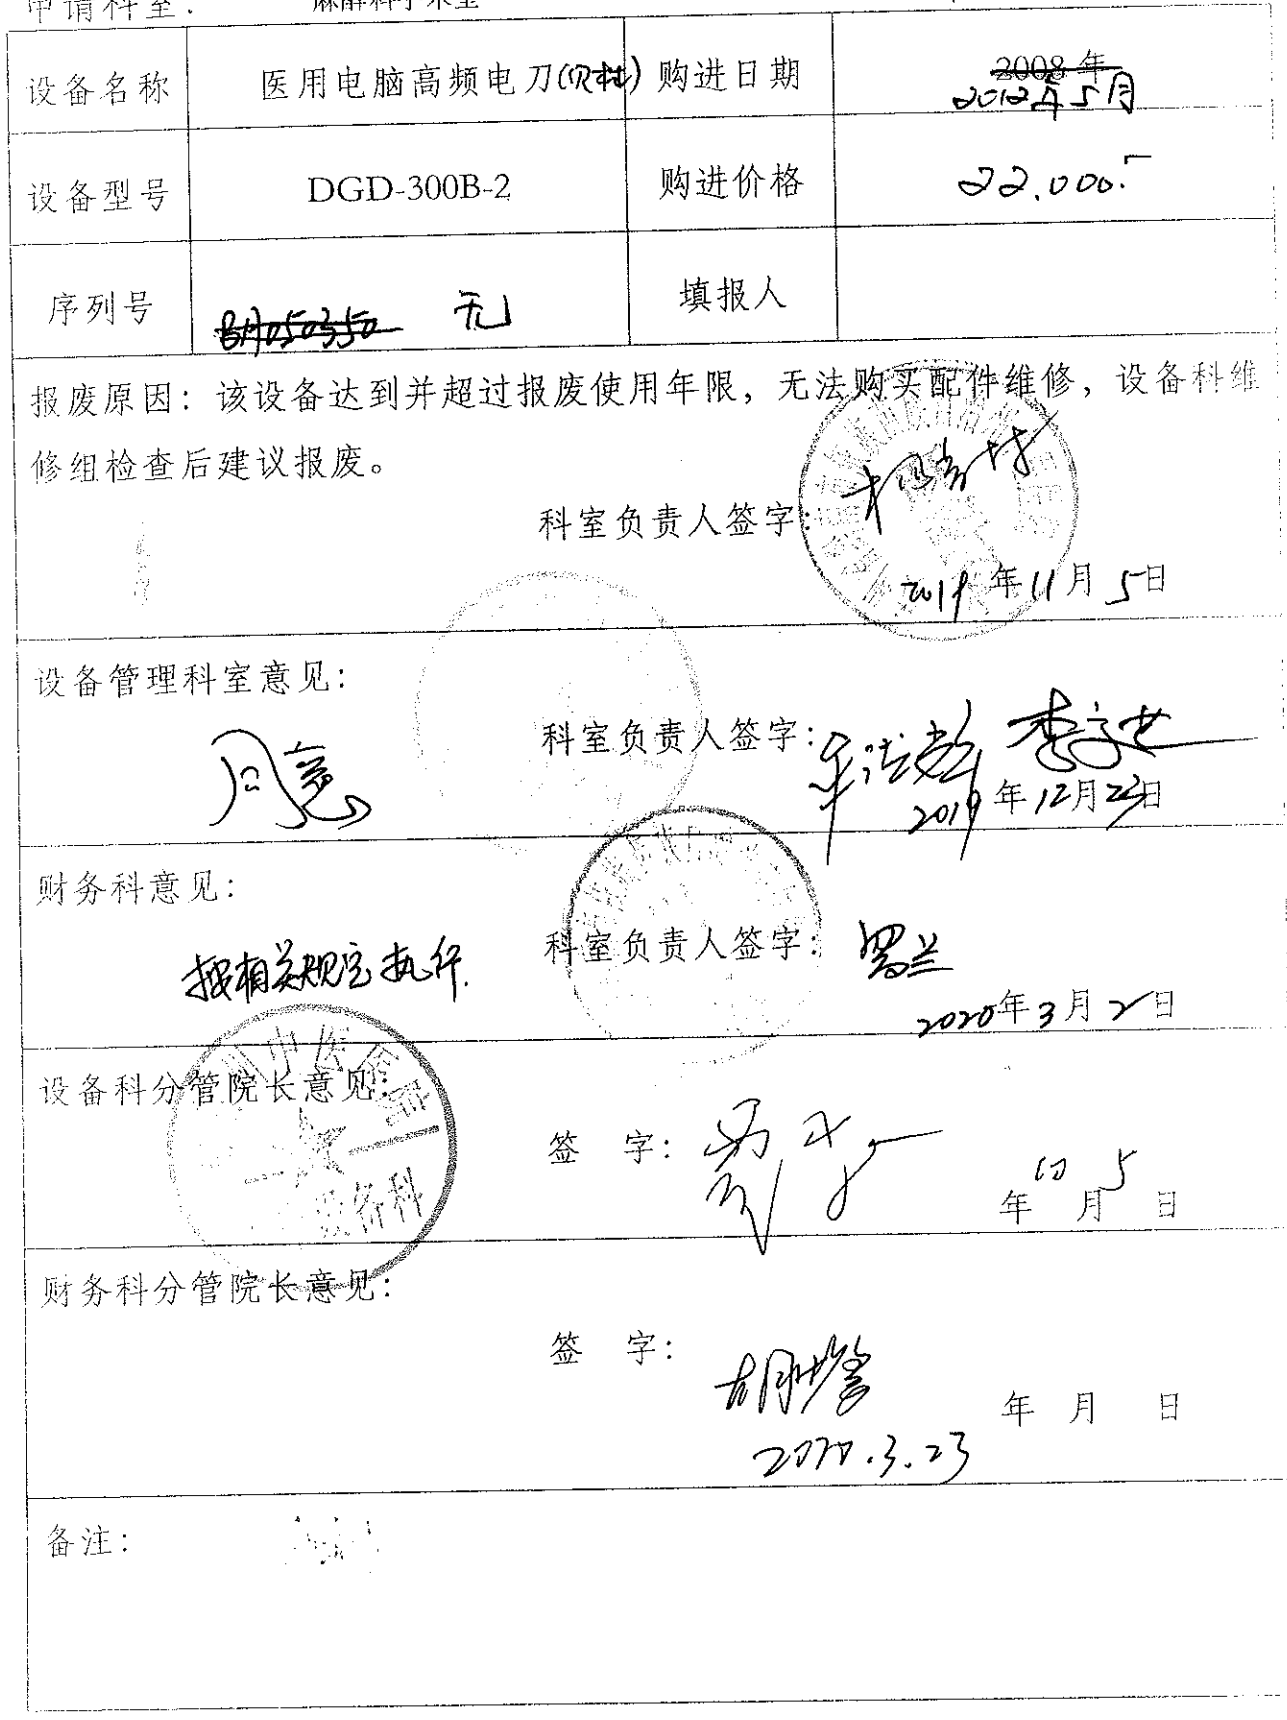 申请科室： 麻醉科手术室
设备名称 医用电脑高频电刀 购进日期 2008年
2012年5月
设备型号 DGD-300B-2 购进价格 22.000.
序列号 BA050350 无 填报人
报废原因：该设备达到并超过报废使用年限，无法购买配件维修，设备科维
修组检查后建议报废。
科室负责人签字：
2019年11月5日
设备管理科室意见：
同意 科室负责人签字：
2019年12月23日
财务科意见：
按相关规定执行. 科室负责人签字： 罗兰
2020年3月2日
州中医医院
设备科分管院长意见：
签 字：
年 10 月 5 日
设备科
财务科分管院长意见：
签 字：
年 月 日
2020.3.23
备注：